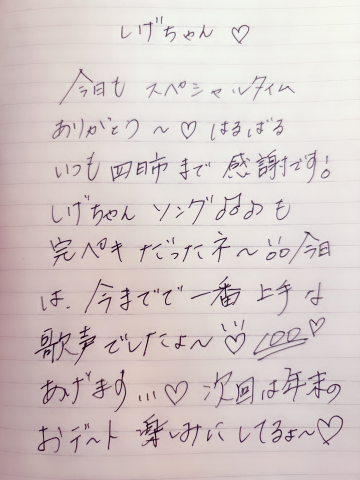 しげちゃん ♡
今日も スペシャルタイム
ありがとう〜♡ はるばる
いつも 四日市 まで 感謝です!
しげちゃん ソング♫♫♪も
完ペキ だったネ〜 今日
は、今までで 一番 上手な
歌声でしたよ〜♡ 100♡
あげます…♡ 次回は年末の
おデート 楽しみに してるよ〜♡